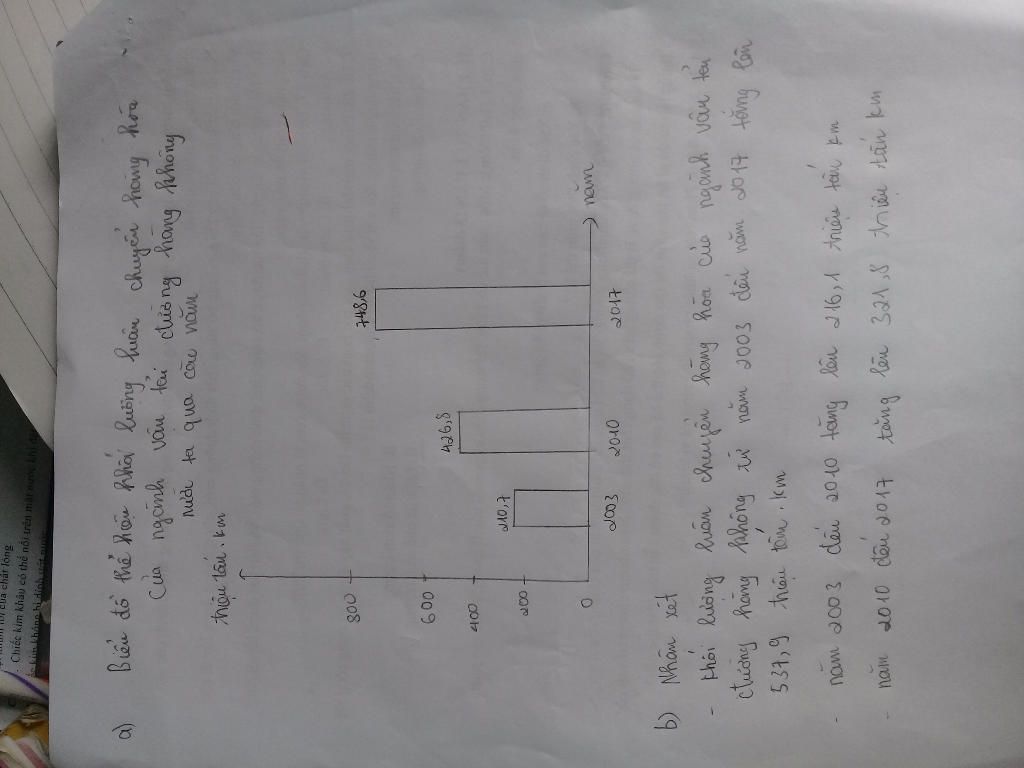 a) Biểu đồ thể hiện khối lượng luân chuyển hàng hóa
của ngành vận tải đường hàng không
nước ta qua các năm
triệu tấn.km
800
600
400
200
0
210,7
426,8
748,6
2003
2010
2017
năm
b) Nhận xét
- Khối lượng luân chuyển hàng hóa của ngành vận tải
đường hàng không từ năm 2003 đến năm 2017 tăng lên
537,9 triệu tấn.km
- năm 2003 đến 2010 tăng lên 216,1 triệu tấn km
- năm 2010 đến 2017 tăng lên 321,8 triệu tấn km
của chất lỏng
Chiếc kim khâu có thể nổi trên mặt nước
không bị dính ướt nước